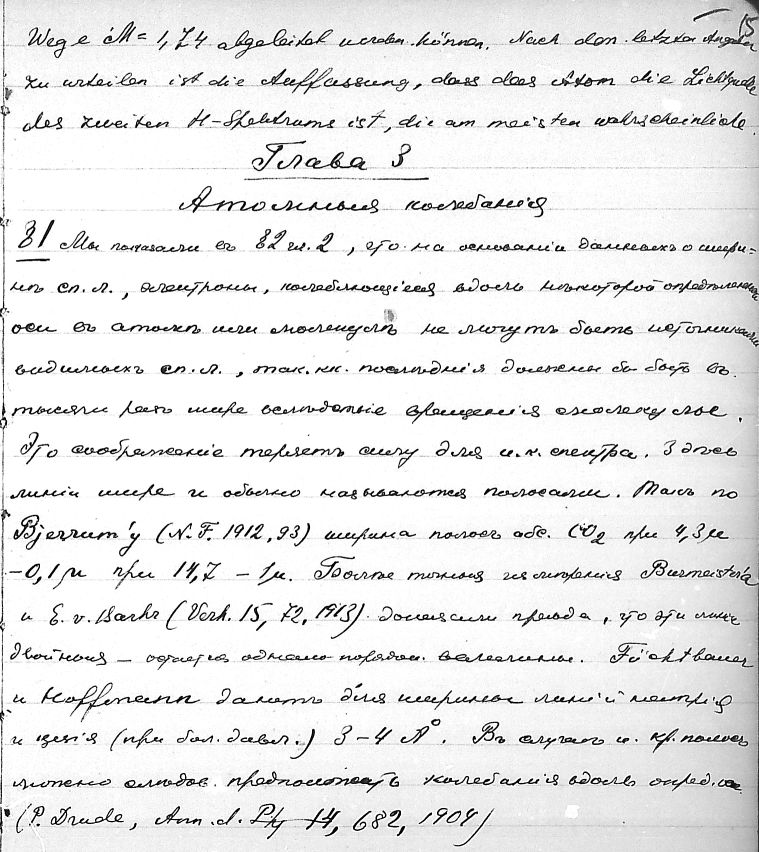 15
Wege M = 1,74 abgeleitet werden können. Nach den letzten Angaben
zu urteilen ist die Auffassung, dass das Atom die Lichtquelle
des zweiten H-Spektrums ist, die am meisten wahrscheinliche.
Глава 3
Атомныя колебанія
§1 Мы показали въ §2 гл. 2, что на основаніи данныхъ о шири=
нѣ сп. л., электроны, колеблющіеся вдоль нѣкоторой опредѣленной
оси въ атомѣ или молекулѣ не могутъ быть источниками
видимыхъ сп. л., так. кк. послѣднія должны бы быть въ
тысячи разъ шире вслѣдствіе вращенія молекулы.
Это соображеніе теряетъ силу для и. к. спектра. Здѣсь
линіи шире и обычно называются полосами. Такъ по
Bjerrum'у (N. F. 1912, 93) ширина полосъ абс. CO2 при 4,3 µ
– 0,1 µ при 14,7 – 1 µ. Болѣе точныя измѣренія Burmeister'а
и E. v. Bahr (Verh. 15, 72, 1913) доказали правда, что эти линіи
двойныя – остается однако порядок величины. Füchtbauer
и Hoffmann даютъ для ширины линій натрія
и цезія (при бол. давл.) 3–4 Å. Въ случаѣ и. кр. полосъ
можно слѣдов. предположить колебанія вдоль опред.
(P. Drude, Ann. d. Ph 14, 682, 1904)